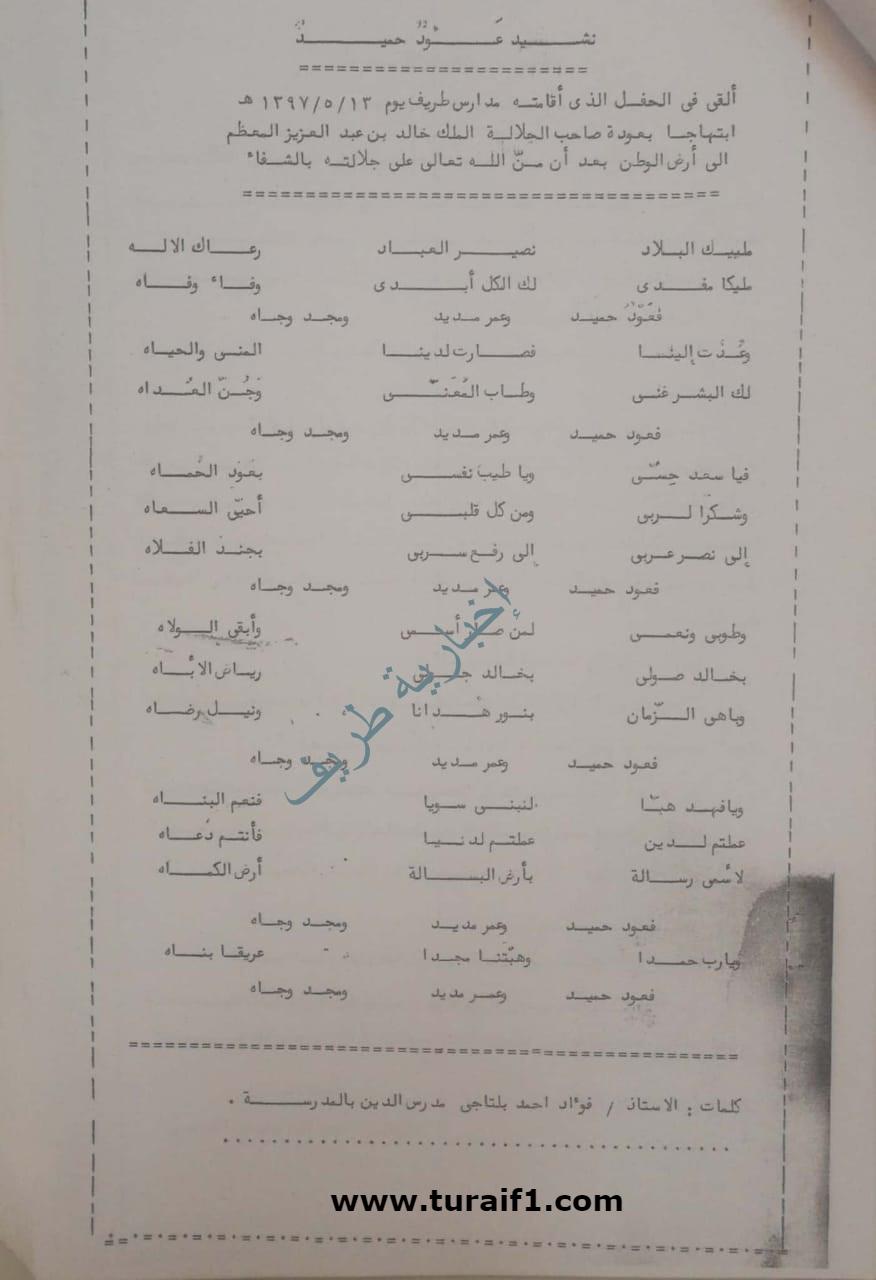 نشيد عَوْدٌ حميدٌ
ألقى فى الحفل الذى أقامته مدارس طريف يوم ١٣٩٧/٥/١٣ هـ
ابتهاجا بعودة صاحب الجلالة الملك خالد بن عبد العزيز المعظم
الى أرض الوطن بعد أن منّ الله تعالى على جلالته بالشفاء
مليك البلاد نصير العباد رعاك الاله
مليكا مفدى لك الكل أبدى وفاء وفاه
فَعَوْدٌ حميد وعمر مديد ومجد وجاه
وعُدْت إلينا فصارت لدينا المنى والحياه
لك البشر غنى وطاب المُعَنّى وَجُنّ العُداه
فعود حميد وعمر مديد ومجد وجاه
فيا سعد حِسّى ويا طيب نفسى بعَوْد الحُماه
وشكرا لربى ومن كل قلبى أحيّى السعاه
إلى نصر عربى إلى رفع سربى بجند الفلاه
فعود حميد وعمر مديد ومجد وجاه
وطوبى ونعمى لمن أسمى وأبقى الولاه
بخالد صولى بخالد رياض الأباه
وباهى الزّمان بنور هُدانا ونيل رضاه
فعود حميد وعمر مديد ومجد وجاه
ويافهد هبّا لنبنى سويا فنعم البناه
عملتم لدين عملتم لدنيا فأنتم دُعاه
لأسمى رسالة بأرض البسالة أرض الكماه
فعود حميد وعمر مديد ومجد وجاه
ويارب حمدا وهبْتنا مجدا عريقا بناه
فعود حميد وعمر مديد ومجد وجاه
كلمات : الاستاذ / فؤاد احمد بلتاجى مدرس الدين بالمدرسة .
إخبارية طريف
www.turaif1.com